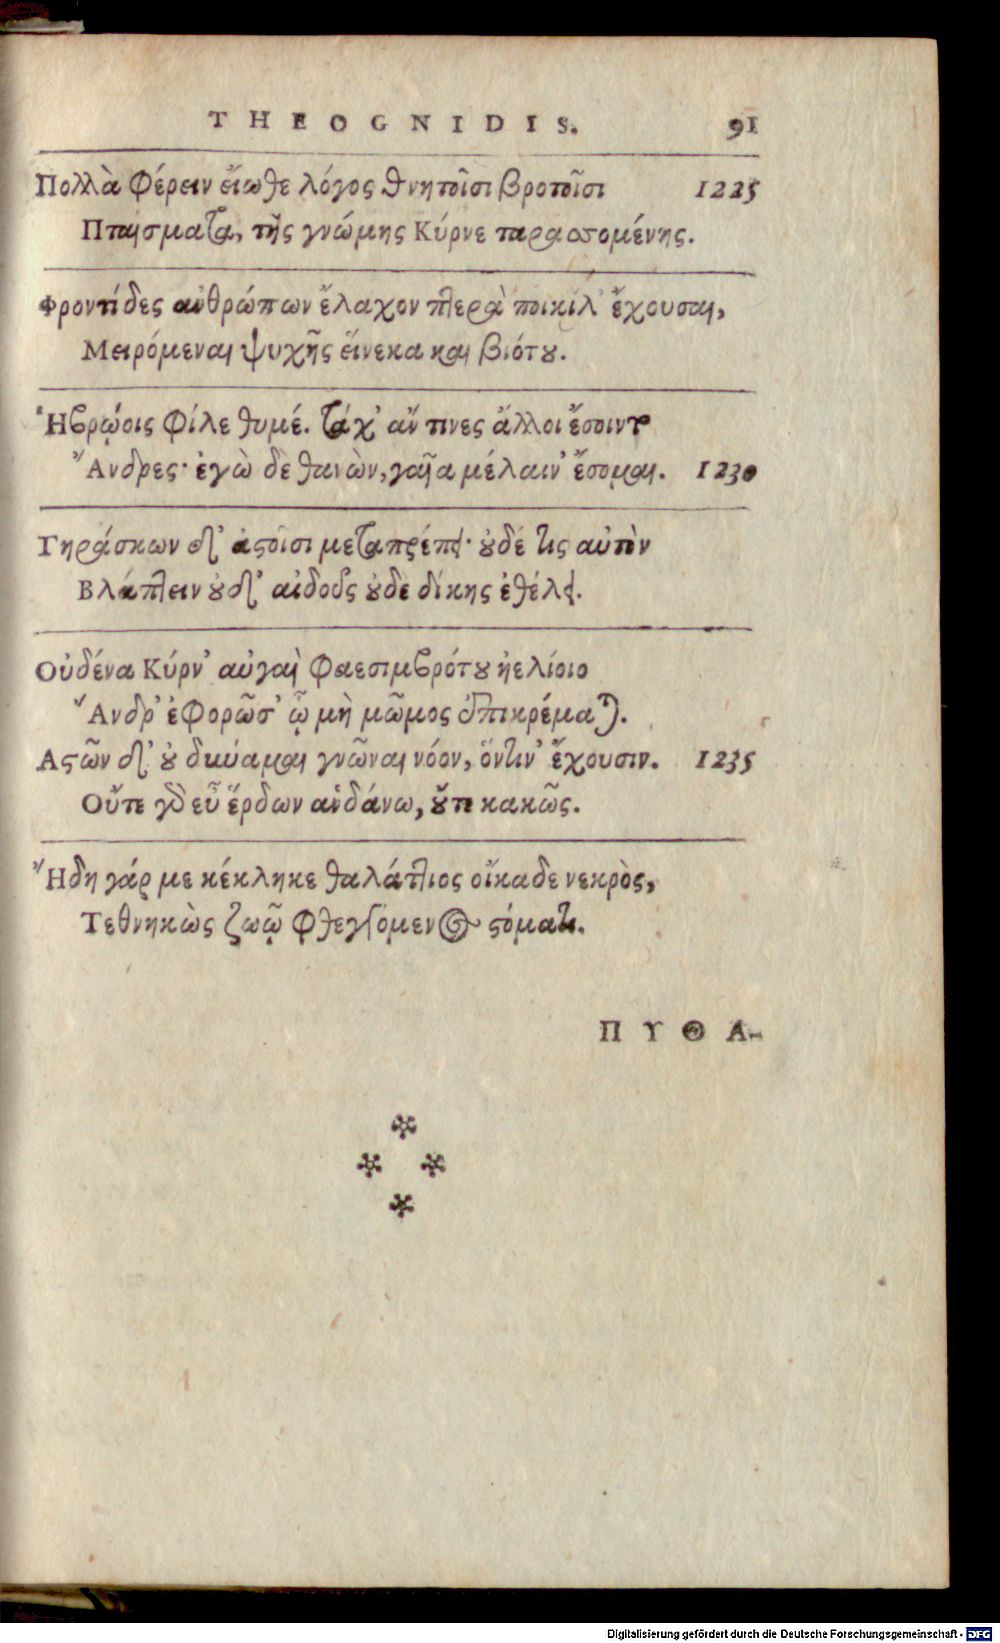 THEOGNIDIS. 91
Πολλὰ φέρειν εἴωθε λόγος θνητοῖσι βροτοῖσι 1225
Πταίσματα, τῆς γνώμης Κύρνε ταρασσομένης.
Φροντίδες ἀνθρώπων ἔλαχον πτερὰ ποικίλ' ἔχουσαι,
Μειρόμεναι ψυχῆς εἵνεκα καὶ βιότου.
Ἡβρώοις φίλε θυμέ. τάχ' ἄν τινες ἄλλοι ἔσοιντο
Ἄνδρες· ἐγὼ δὲ θανὼν, γαῖα μέλαιν' ἔσομαι. 1230
Γηράσκων δ' ἀστοῖσι μεταπρέπει· οὐδέ τις αὐτὸν
Βλάπτειν οὐδ' αἰδοῦς οὐδὲ δίκης ἐθέλει.
Οὐδένα Κύρν' αὐγαὶ φαεσιμβρότου ἠελίοιο
Ἄνδρ' ἐφορῶσ' ᾧ μὴ μῶμος ἐπικρέμαται.
Αστῶν δ' οὐ δύναμαι γνῶναι νόον, ὅντιν' ἔχουσιν. 1235
Οὔτε γὰρ εὖ ἔρδων ἁνδάνω, οὔτε κακῶς.
Ἤδη γάρ με κέκληκε θαλάττιος οἴκαδε νεκρὸς,
Τεθνηκὼς ζωῷ φθεγγόμενος στόματι.
ΠΥΘΑ-
Digitalisierung gefördert durch die Deutsche Forschungsgemeinschaft - DFG